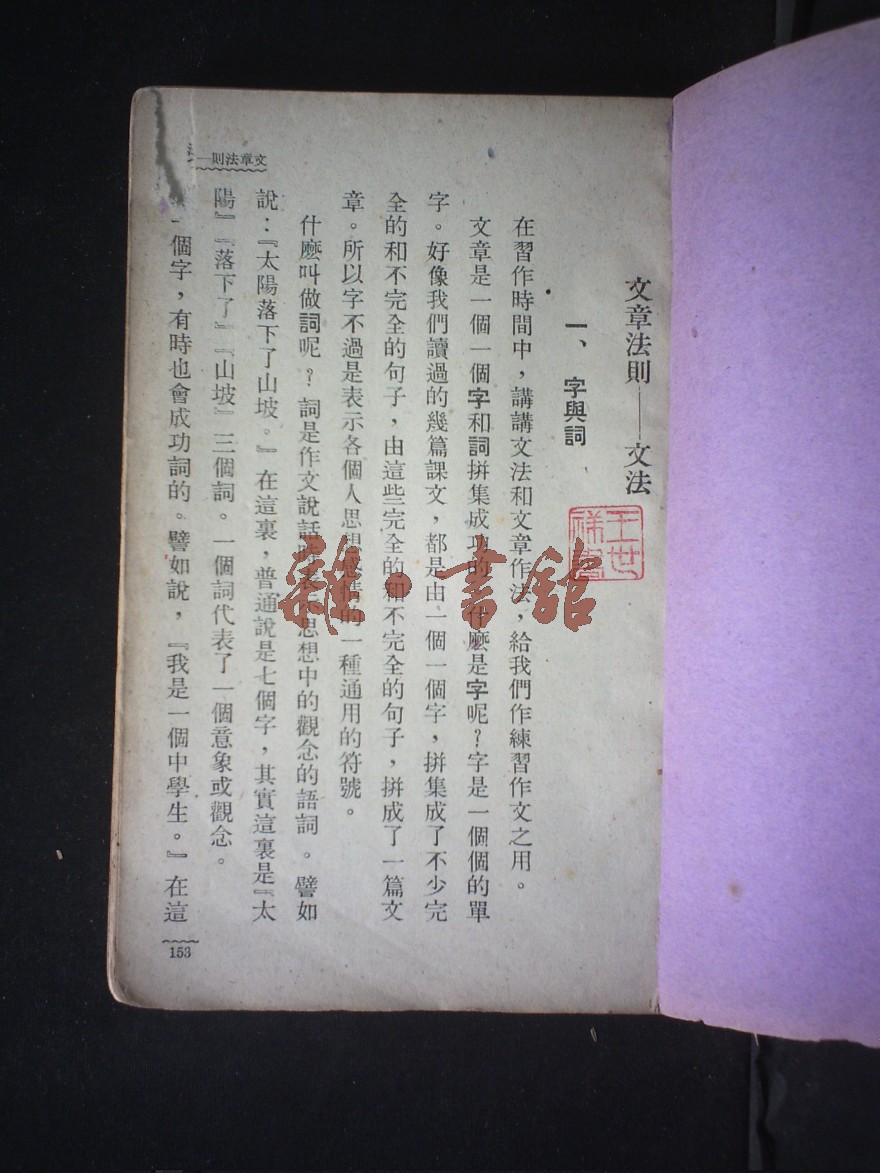 文章法則——文法
一、字與詞
在習作時間中，講講文法和文章作法，給我們作練習作文之用。
文章是一個一個字和詞拼集成功的，什麼是字呢？字是一個個的單
字。好像我們讀過的幾篇課文，都是由一個一個字，拼集成了不少完
全的和不完全的句子，由這些完全的和不完全的句子，拼成了一篇文
章。所以字不過是表示各個人思想感情的一種通用的符號。
什麼叫做詞呢？詞是作文說話時表示思想中的觀念的語詞。譬如
說：『太陽落下了山坡。』在這裏，普通說是七個字，其實這裏是『太
陽』『落下了』『山坡』三個詞。一個詞代表了一個意象或觀念。
一個字，有時也會成功詞的。譬如說，『我是一個中學生。』在這
文章法則—
153
王世
祥
雜·書館